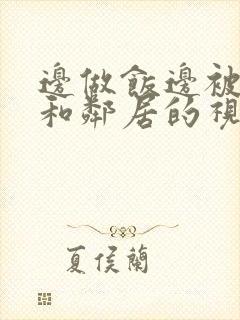 邊做飯邊被
和鄰居的視
夏侯蘭